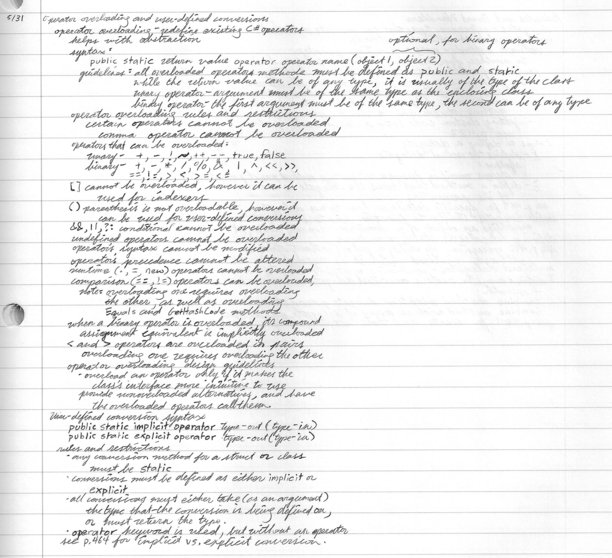 5/31 Operator overloading and user-defined conversions
operator overloading - redefine existing C# operators
helps with abstraction
optional, for binary operators
syntax:
public static return value operator operator name (object1, object2)
guidelines: all overloaded operators methods must be defined as public and static
while the return value can be of any type, it is usually of the type of the class
unary operator - argument must be of the same type as the enclosing class
binary operator - the first argument must be of the same type, the second can be of any type
operator overloading rules and restrictions
certain operators cannot be overloaded
comma operator cannot be overloaded
operators that can be overloaded:
unary - +, -, !, ~, ++, --, true, false
binary - +, -, *, /, %, &, |, ^, <<, >>,
==, !=, >, <, >=, <=
[] cannot be overloaded, however it can be
used for indexers
() parenthesis is not overloadable, however it
can be used for user-defined conversions
&&, ||, ?: conditional cannot be overloaded
undefined operators cannot be overloaded
operators' syntax cannot be modified
operators' precedence cannot be altered
runtime (., =, new) operators cannot be overloaded
comparison (==, !=) operators can be overloaded,
note: overloading one requires overloading
the other, as well as overloading
Equals and GetHashCode methods
when a binary operator is overloaded its compound
assignment equivalent is implicitly overloaded
< and > operators are overloaded in pairs
overloading one requires overloading the other
operator overloading design guidelines
· overload an operator only if it makes the
class's interface more intuitive to use
provide nonoverloaded alternatives, and have
the overloaded operators call them.
User-defined conversion syntax
public static implicit operator type-out (type-in)
public static explicit operator type-out (type-in)
rules and restrictions
· any conversion method for a struct or class
must be static
· conversions must be defined as either implicit or
explicit
· all conversions must either take (as an argument)
the type that the conversion is being defined on,
or must return the type.
· operator keyword is used, but without an operator
see p.464 for implicit vs. explicit conversion.